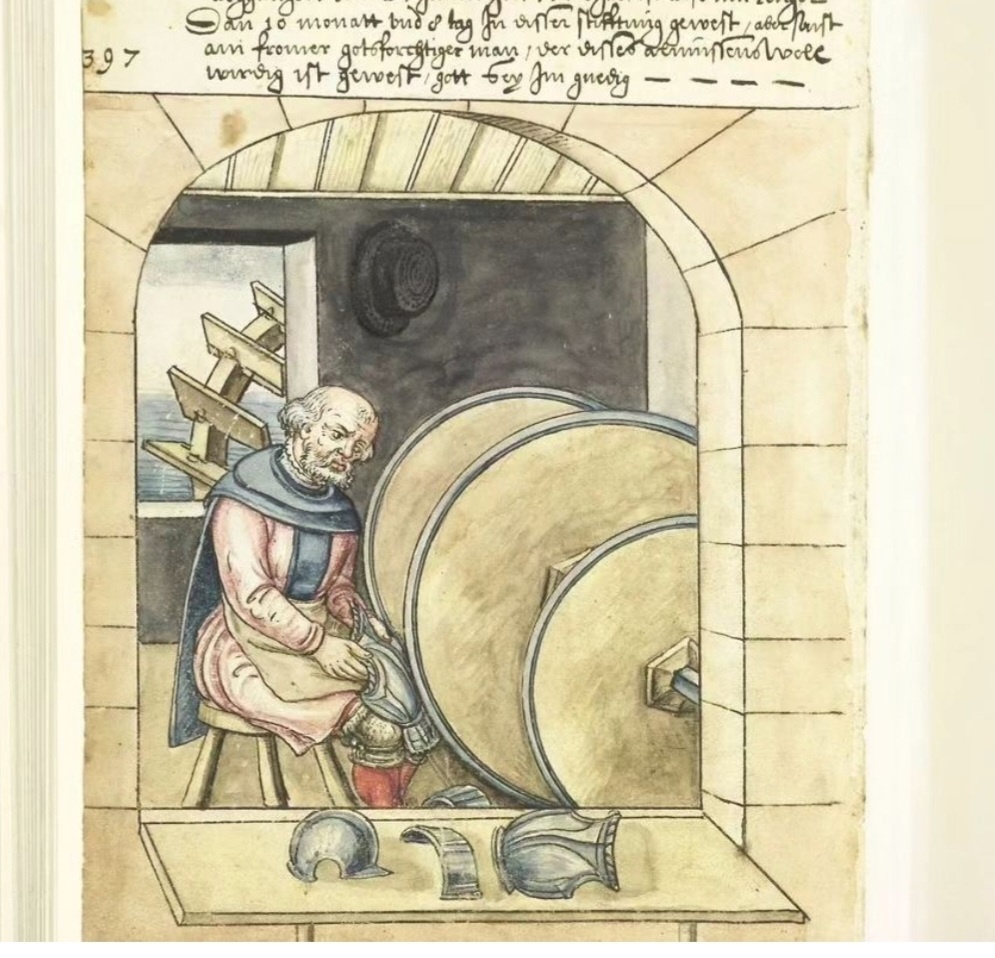 Dan 10 monatt vnd 8 tag Jn disser stifftung gewest, aber sunst
397
ain fromer gotsforchtiger man, der disses almussens woll
wirdig ist gewest, gott sey Jm gnedig